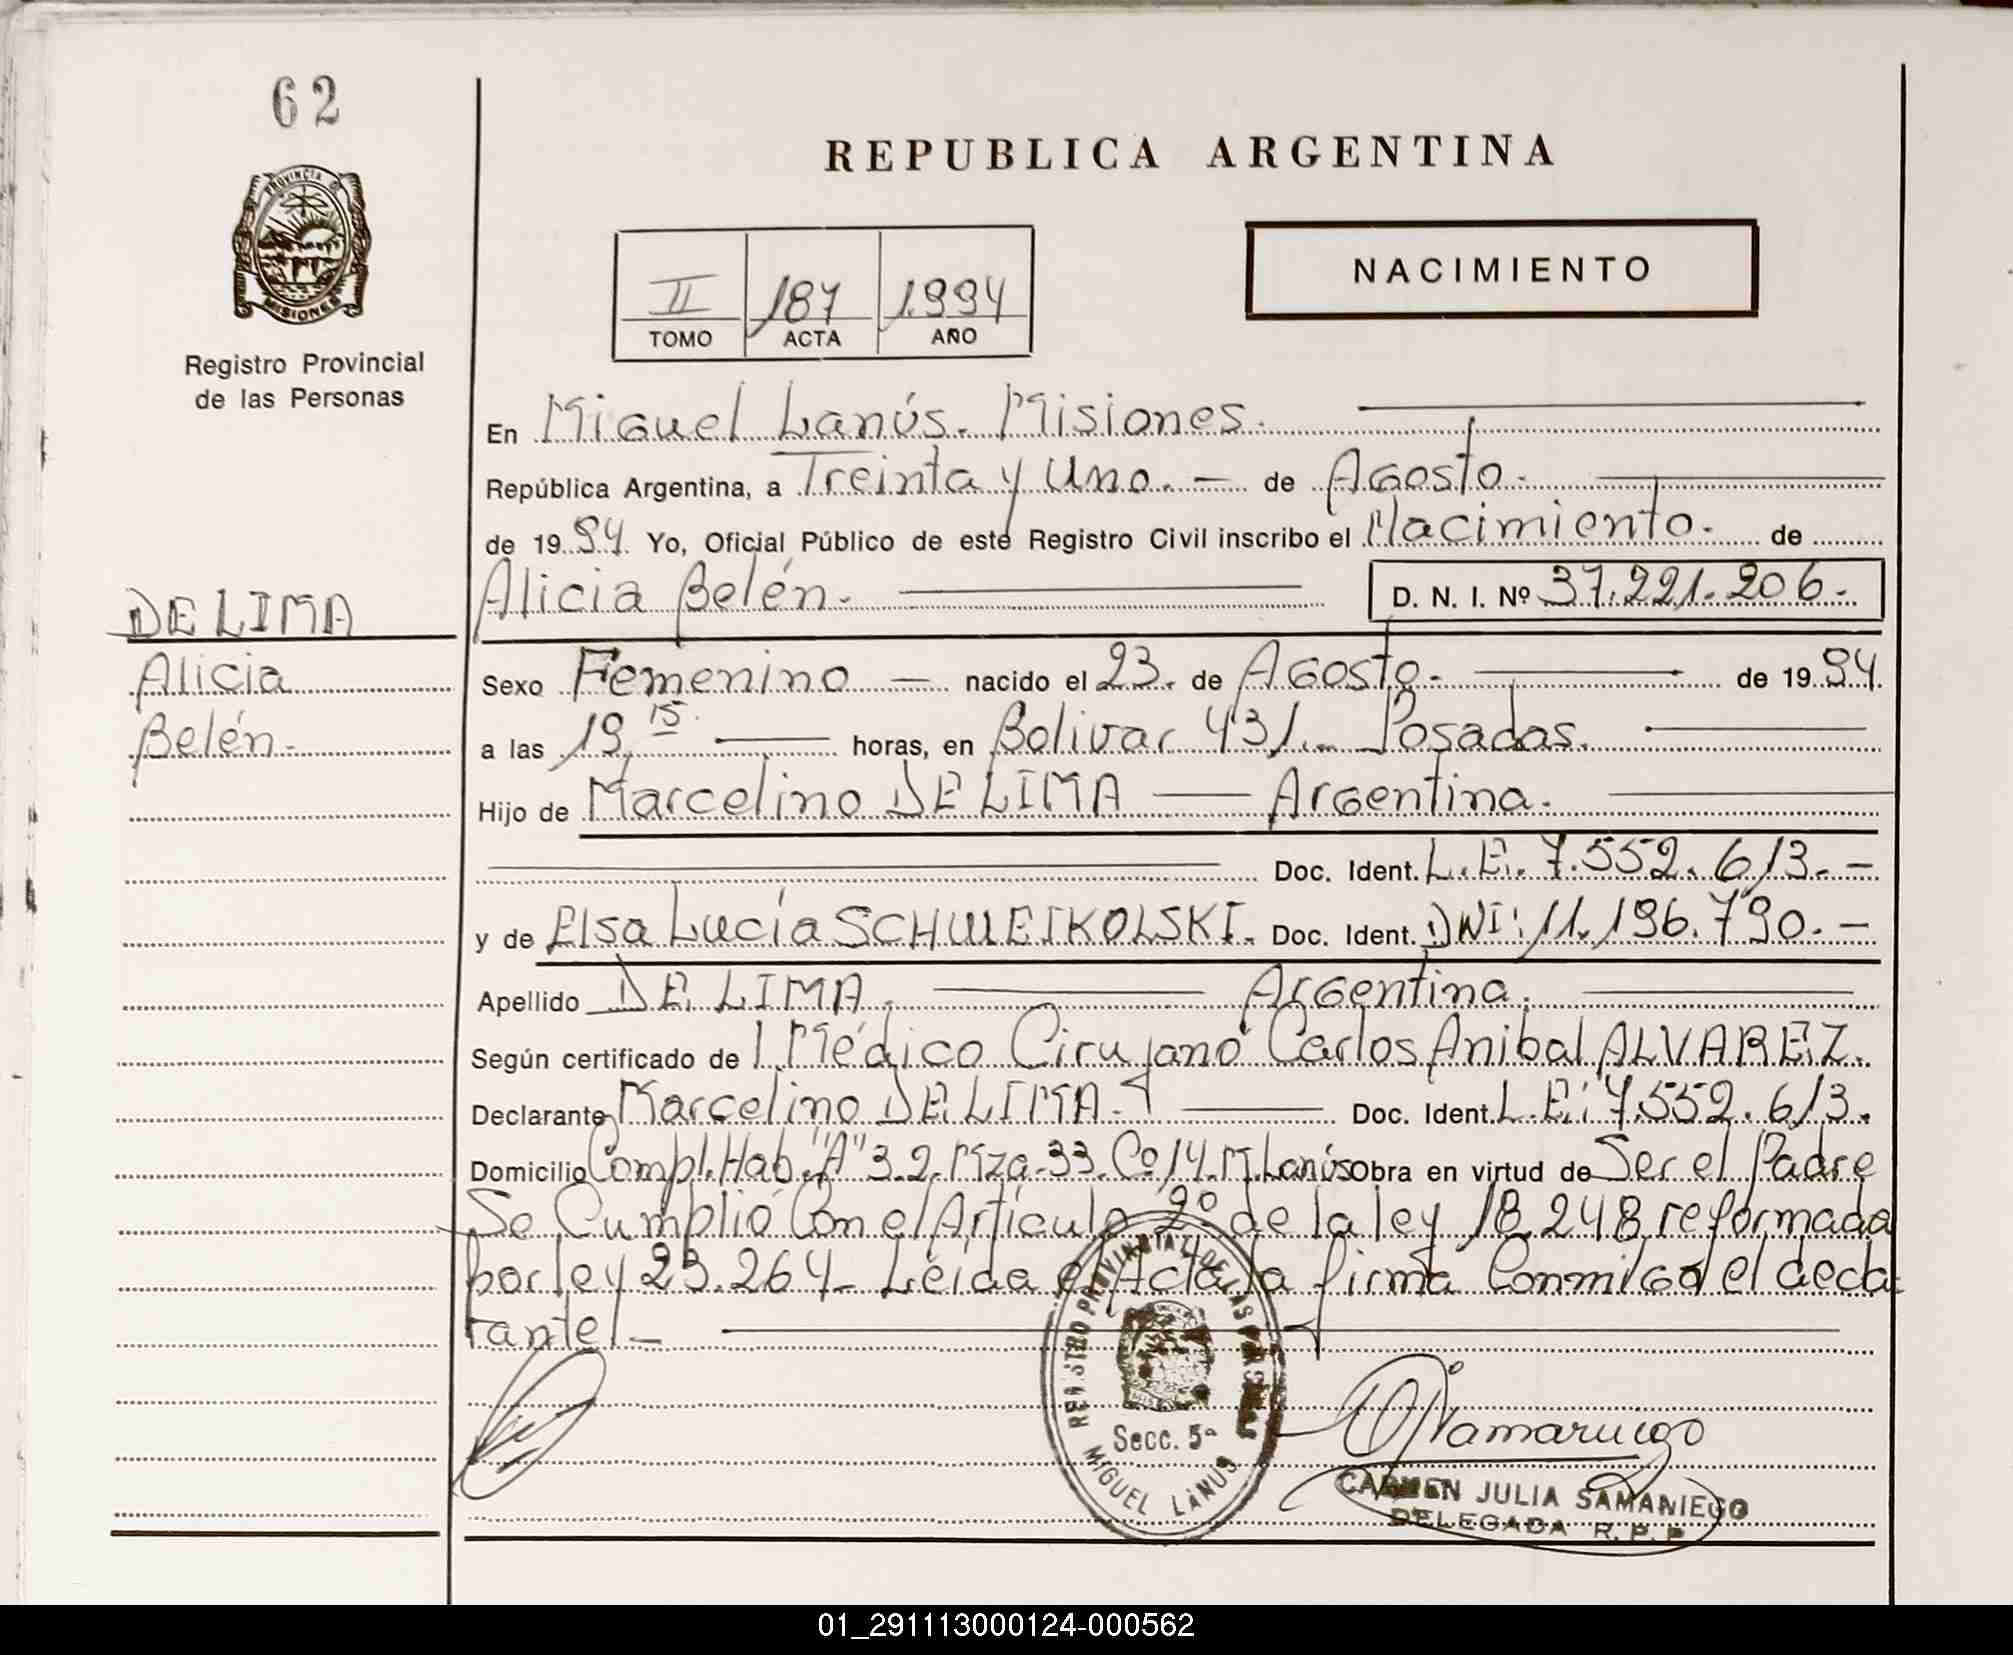 62
PROVINCIA DE
MISIONES
Registro Provincial
de las Personas
REPUBLICA ARGENTINA
II 187 1.994
TOMO ACTA AÑO
NACIMIENTO
En Miguel Lanús. Misiones.
República Argentina, a Treinta y Uno. — de Agosto.
de 1994. Yo, Oficial Público de este Registro Civil inscribo el Nacimiento. de
Alicia Belén. D. N. I. Nº 37.221.206.
DE LIMA
Alicia
Belén.
Sexo Femenino — nacido el 23. de Agosto. de 1994.
a las 19,15 horas, en Bolivar 431. Posadas.
Hijo de Marcelino DE LIMA — Argentina.
Doc. Ident. L.E. 7.552.613.—
y de Elsa Lucía SCHWEIKOLSKI. Doc. Ident. DNI: 11.196.790.—
Apellido DE LIMA. Argentina.
Según certificado de l Médico Cirujano Carlos Anibal ALVAREZ.
Declarante Marcelino DE LIMA. Doc. Ident. L.E: 7.552.613.
Domicilio Compl. Hab. "A" 32. Mza. 33. Cº 14. M. Lanús Obra en virtud de Ser el Padre
Se Cumplió Con el Artículo 2º de la ley 18.248 reformada
por ley 23.264_ Leída el Acta la firma Conmigo el decla-
rante._
REGISTRO PROVINCIAL DE LAS PERSONAS
Secc. 5ª
MIGUEL LANUS
CARMEN JULIA SAMANIEGO
DELEGADA R. P. P.
01_291113000124-000562